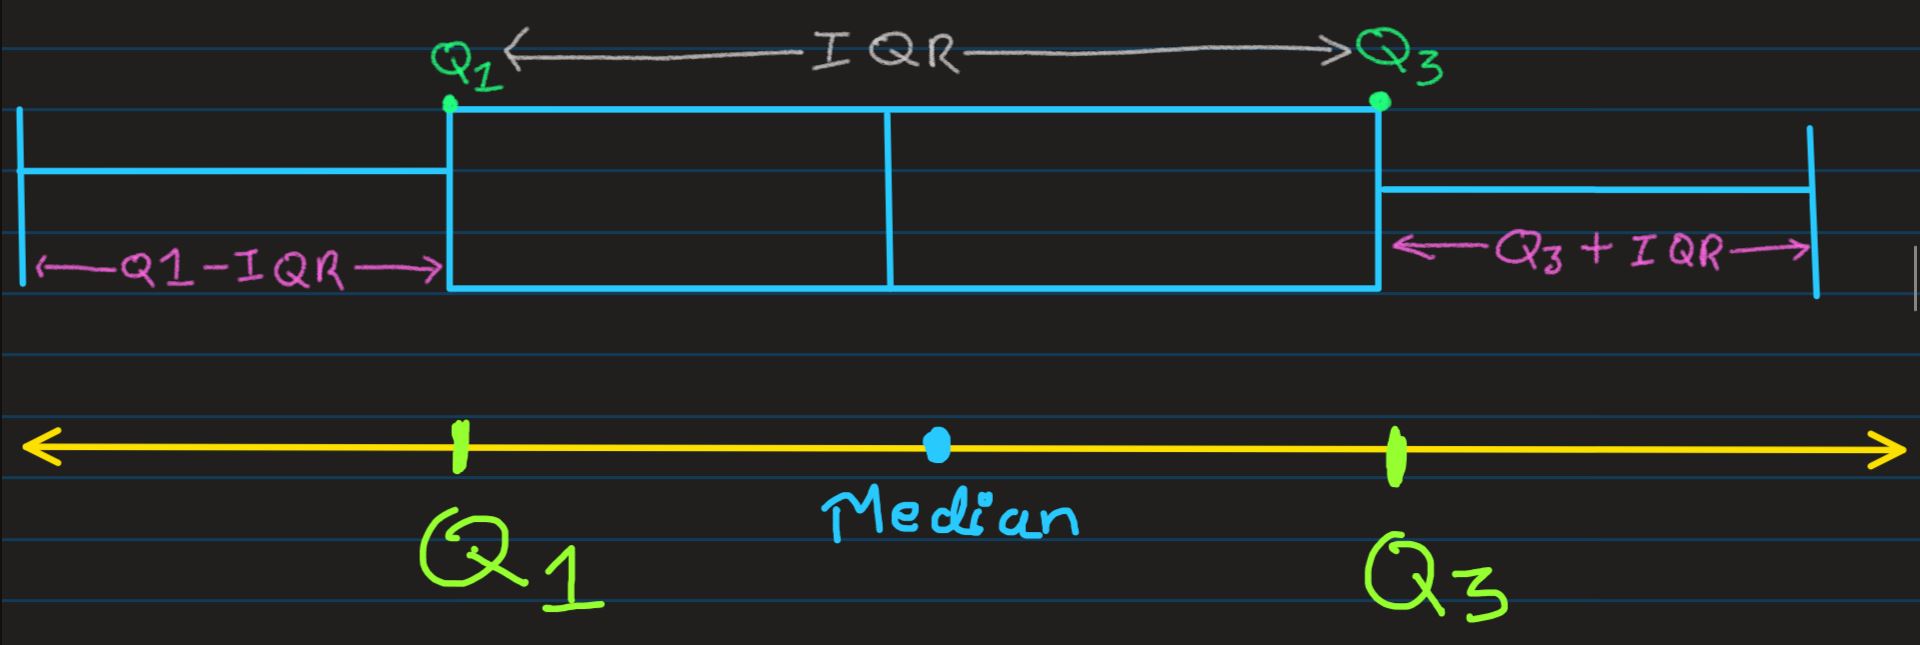 Q1 IQR Q3
Q1-IQR
Q3+IQR
Median
Q1
Q3